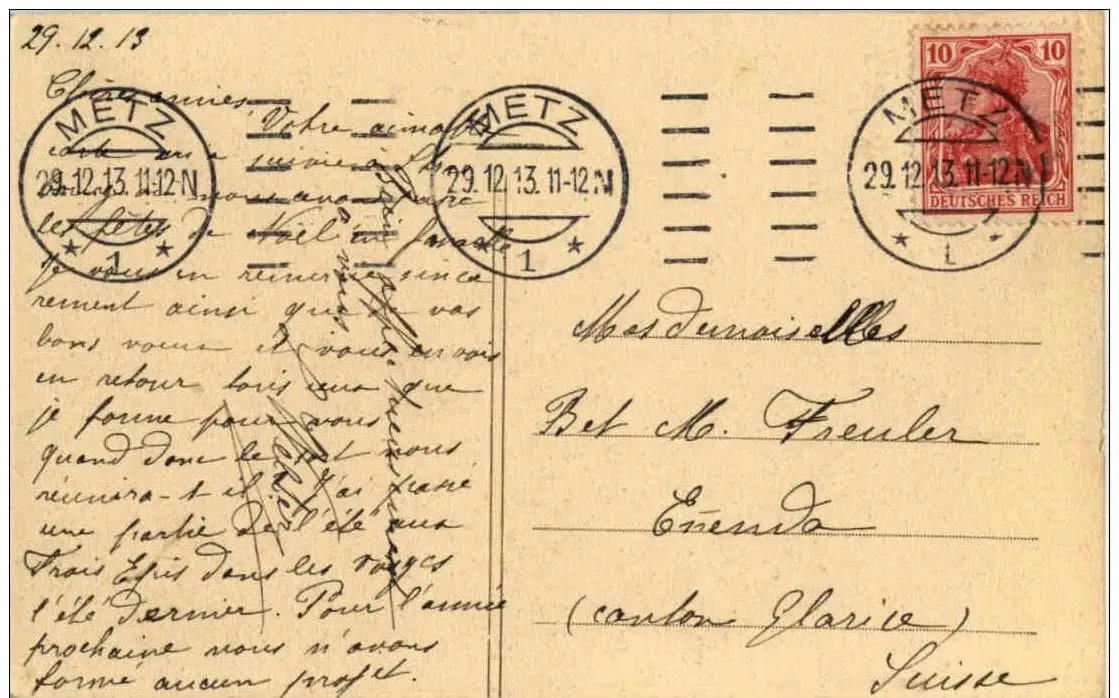 29.12.13
Chères amies
Votre aimable
carte m'a suivie à
nous avons passé
les fêtes de Noël en famille
Je vous en remercie sincè
rement ainsi que de vos
bons voeux et vous envoie
en retour tous ceux que
je forme pour vous
quand donc le sort nous
réunira-t-il J'ai passé
une partie de l'été aux
Trois Epis dans les vosges
l'été dernier. Pour l'année
prochaine nous n'avons
formé aucun projet.
Bien affectueusement
à vous
METZ
29.12.13.11-12N
1
METZ
29.12.13.11-12N
1
METZ
29.12.13.11-12N
1
10 10
DEUTSCHES REICH
Mesdemoiselles
Bet M. Freuler
Eñenda
(canton Glarice)
Suisse